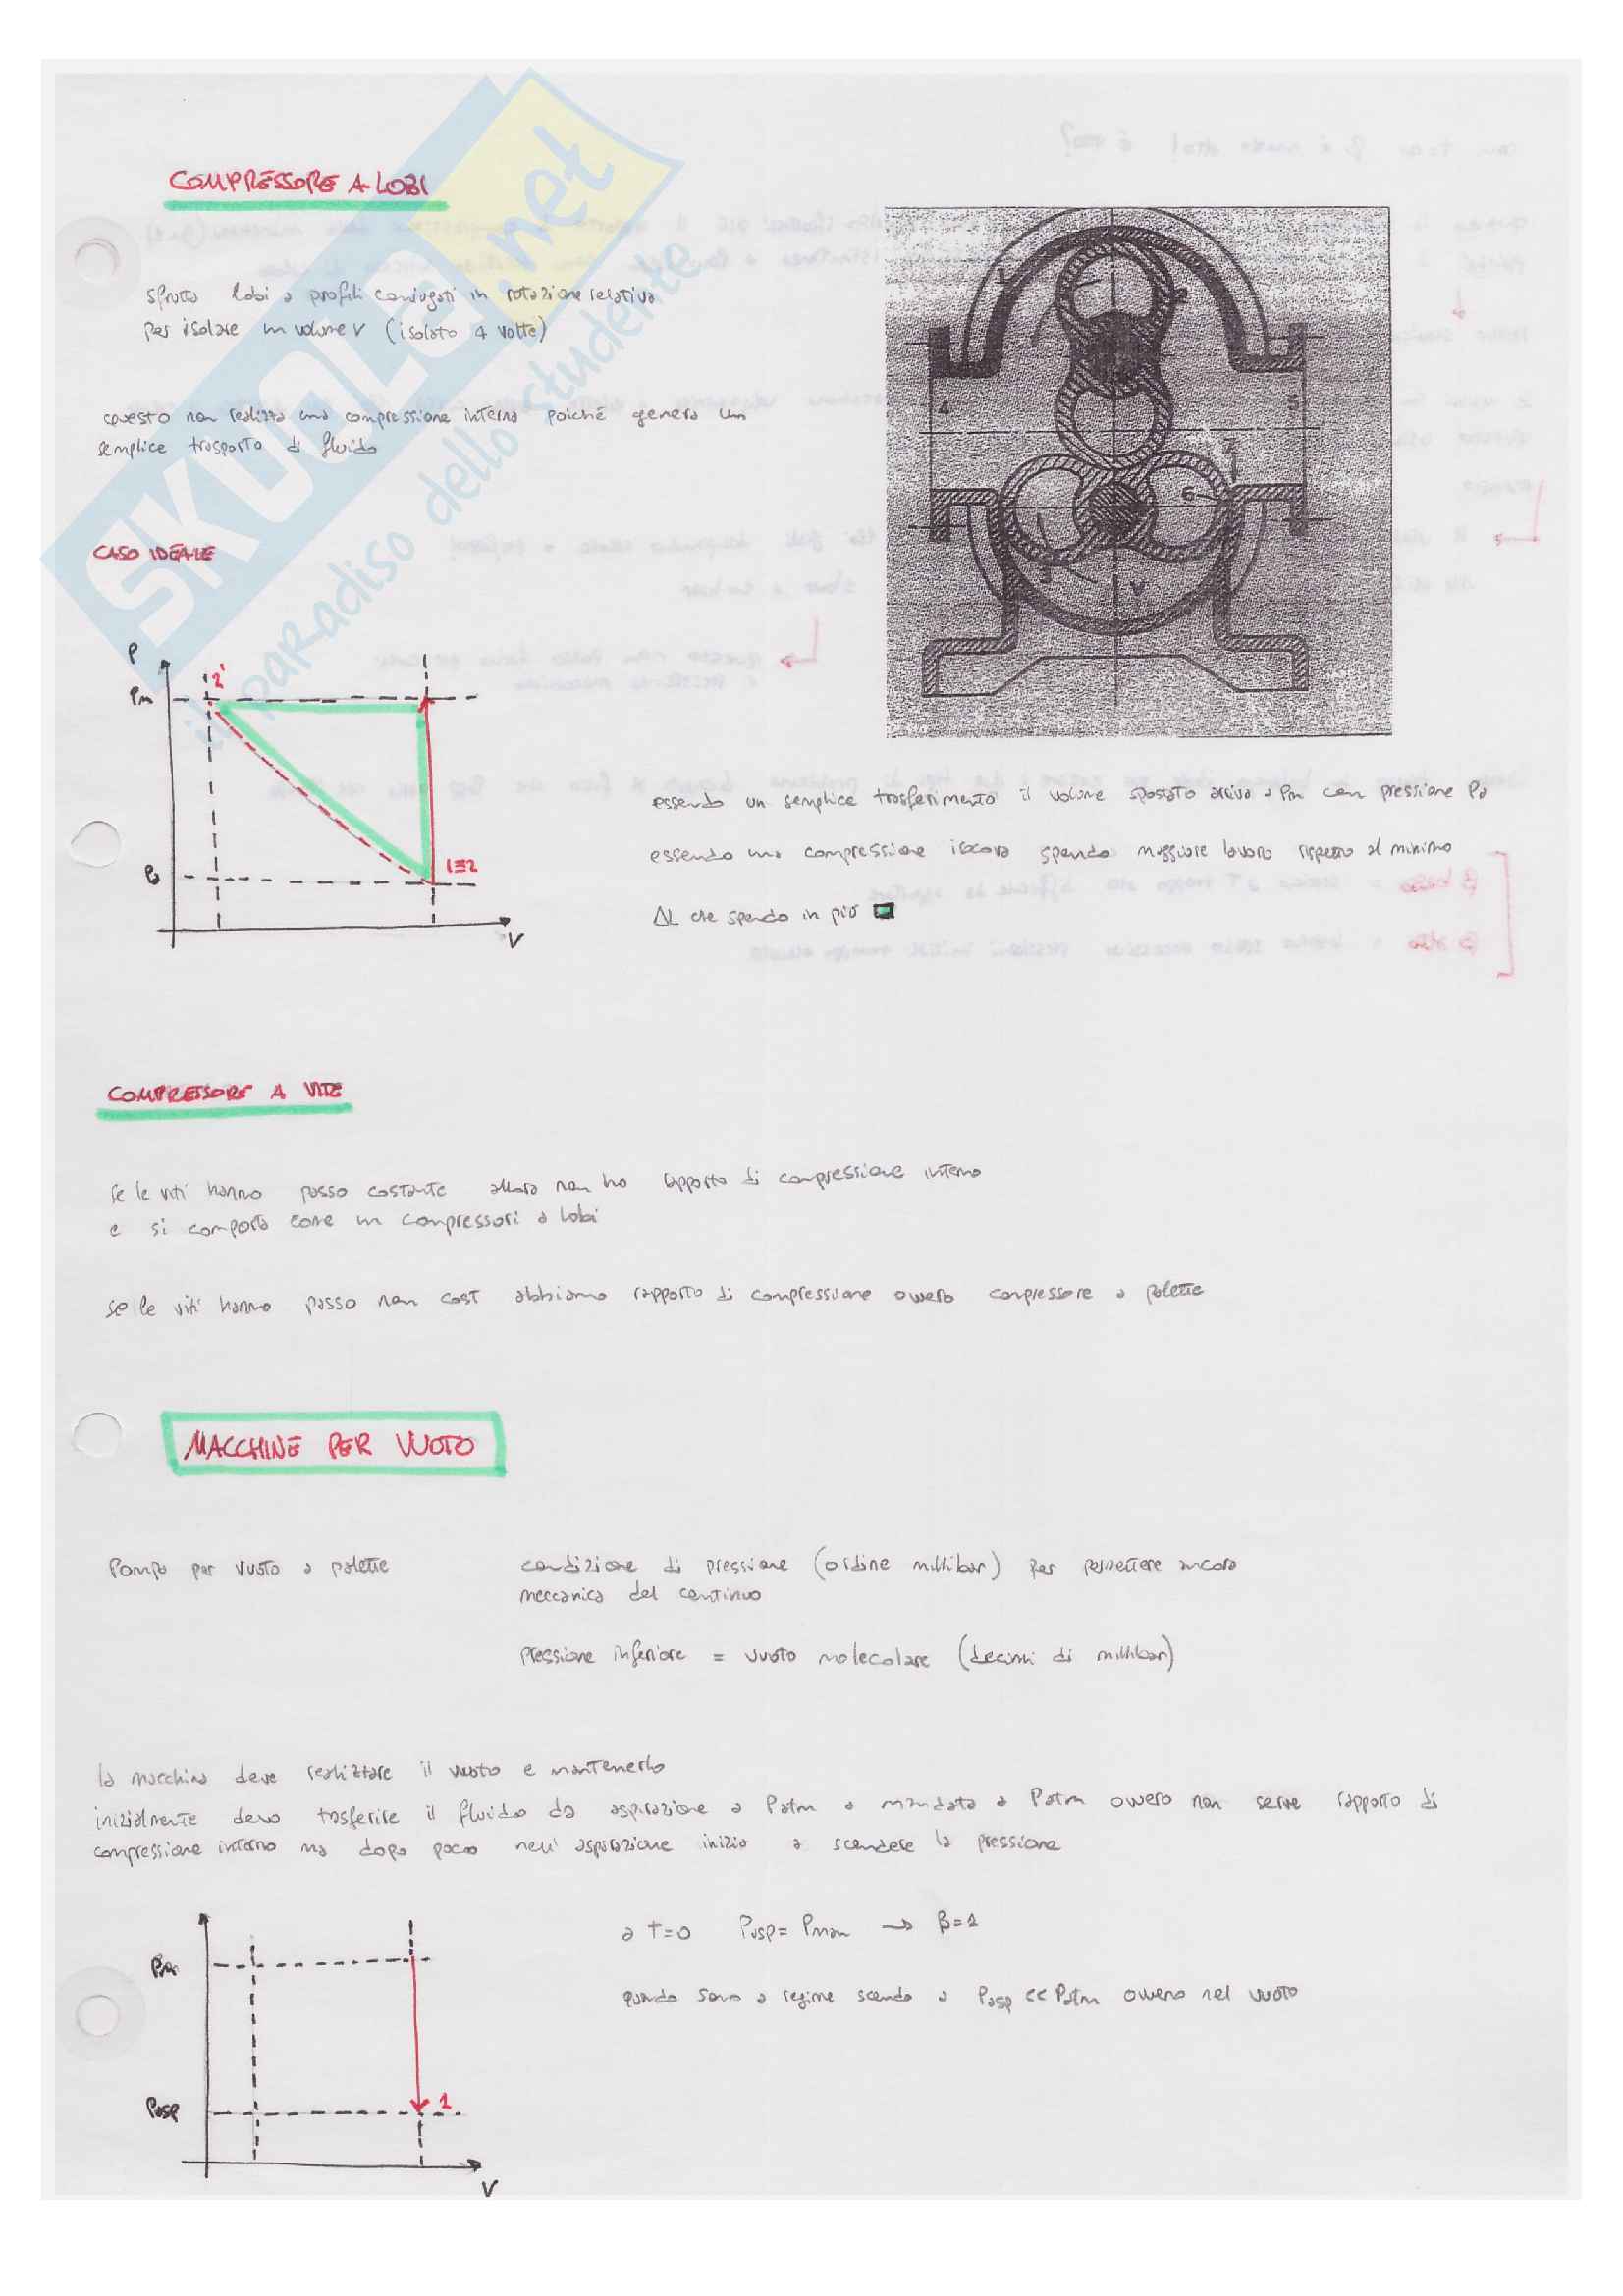 COMPRESSORE A LOBI
SKUOLA.net
il paradiso dello studente
sfrutta lobi a profili coniugati in rotazione relativa
per isolare un volume V (isolato 4 volte)
questo non realizza una compressione interna poiché genera un
semplice trasporto di fluido
1
2
4
5
7
6
3
V
CASO IDEALE
P
Pm
2'
1≡2
V
essendo un semplice trasferimento il volume spostato arriva a Pm con pressione Pa
essendo una compressione isocora spendo maggiore lavoro rispetto al minimo
ΔL che spendo in più
COMPRESSORE A VITE
se le viti hanno passo costante allora non ho rapporto di compressione interno
e si comporta come un compressori a lobi
se le viti hanno passo non cost abbiamo rapporto di compressione ovvero compressore a palette
MACCHINE PER VUOTO
Pompa per vuoto a palette
condizione di pressione (ordine millibar) per permettere ancora
meccanica del continuo
pressione inferiore = vuoto molecolare (decimi di millibar)
la macchina deve realizzare il vuoto e mantenerlo
inizialmente devo trasferire il fluido da aspirazione a Patm a mandata a Patm ovvero non serve rapporto di
compressione interno ma dopo poco nell'aspirazione inizia a scendere la pressione
Pm
Pasp
1
V
a T=0 Pasp= Pman → β=1
quando sono a regime scendo a Pasp << Patm ovvero nel vuoto